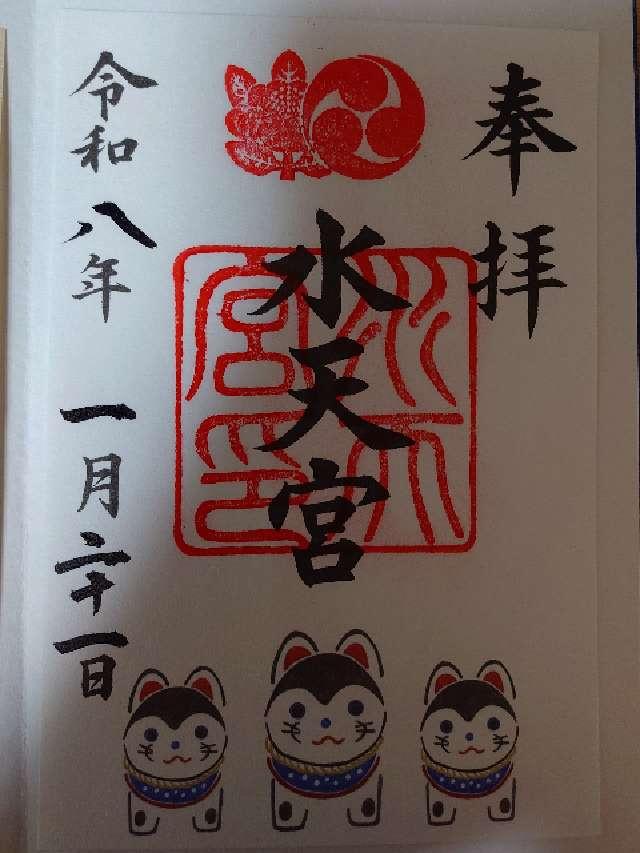 奉拝
水天宮
水天宮印
令和八年 一月二十一日